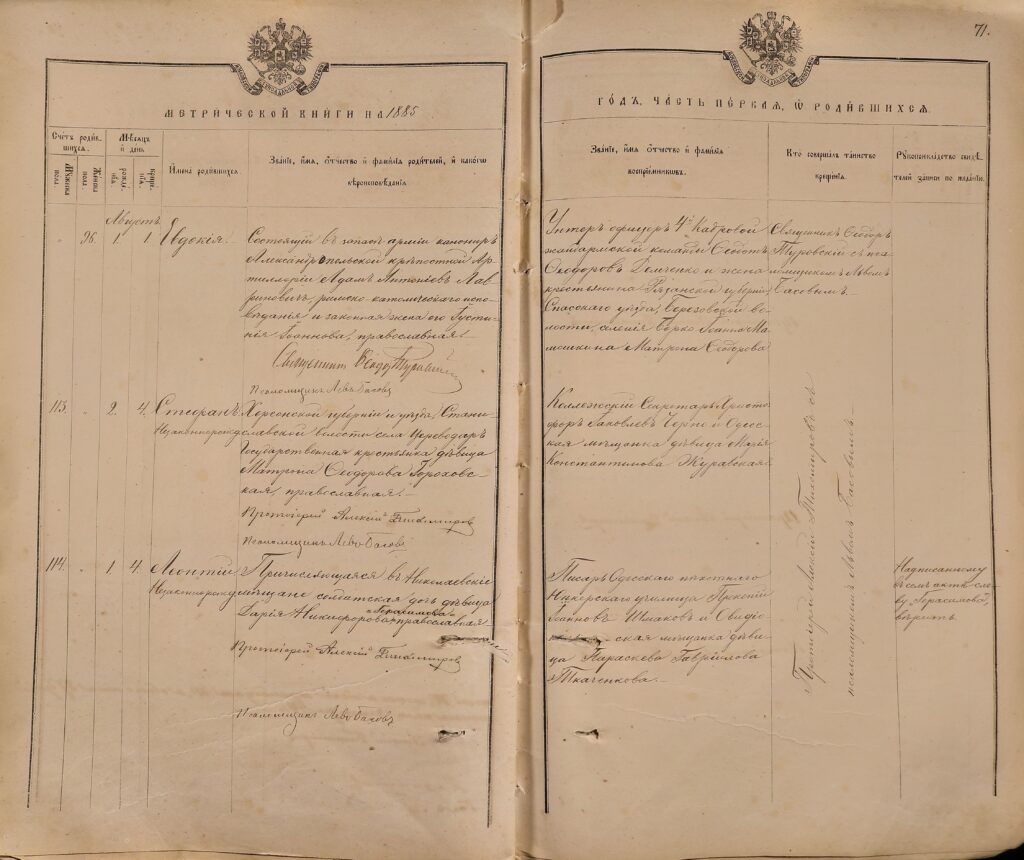 71.
МЕТРИЧЕСКОЙ КНИГИ НА 1885
ГОДЪ, ЧАСТЬ ПЕРВАЯ, Ѡ РОДИВШИХСЯ.
Счетъ родив-
шихся.
Мужеска пола.
Женска пола.
Мѣсяцъ и день
рожденія.
крещенія.
Имена родившихся.
Званіе, имя, отчество и фамилія родителей, и какого
вѣроисповѣданія
Званіе, имя, отчество и фамилія
воспріемниковъ.
Кто совершалъ таинство
крещенія.
Рукоприкладство свидѣ-
телей записи по желанію.
Августъ
96. 1. 1 Евдокія.
Состоящій въ запасѣ арміи канониръ
Александропольской крѣпостной Ар-
тиллеріи Адамъ Антоновъ Лав-
риновичъ, римско-католическаго испо-
вѣданія и законная жена его Густи-
нія Іоаннова, православная.
Священникъ Ѳеодоръ Туровскій
Псаломщикъ Левъ Басовъ
Унтеръ офицеръ 4й Кадровой
жандармской команды Ѳедотъ
Ѳеодоровъ Демченко и жена
крестьянина Рязанской губерніи
Спасскаго уѣзда, Березовской во-
лости, селенія Ѳирко Іоанна Ма-
мошкина Матрона Ѳеодорова
Священникъ Ѳеодоръ
Туровскій съ пса-
ломщикомъ Львомъ
Басовымъ.
113. 2. 4. Стефанъ
Незаконнорожд.
Херсонской губерніи и уѣзда, Стани-
славской волости села Цареводаръ
Государственная крестьянка дѣвица
Матрона Ѳеодорова Гороховс-
кая, православная.
Протоіерей Алексій Тихомировъ
Псаломщикъ Левъ Басовъ
Коллежскій Секретарь Христо-
форъ Іаковлевъ и Одесс-
кая мѣщанка дѣвица Марія
Константинова Журавская
Протоіерей Алексій Тихомировъ съ
псаломщикомъ Львомъ Басовымъ.
114. 1. 4. Леонтій
Незаконнорожд.
Причисляющаяся въ Николаевскіе
мѣщане солдатская дочь дѣвица
Дарія Никифорова Герасимова православная
Протоіерей Алексій Тихомировъ
Псаломщикъ Левъ Басовъ
Писарь Одесскаго пѣхотнаго
Юнкерскаго училища Прокопій
Іоанновъ Шмаковъ и Овидіо-
польская мѣщанка дѣви-
ца Параскева Гавріилова
Ткаченкова.
Надписанному
въ семъ актѣ сло-
ву „Герасимова",
вѣрить.